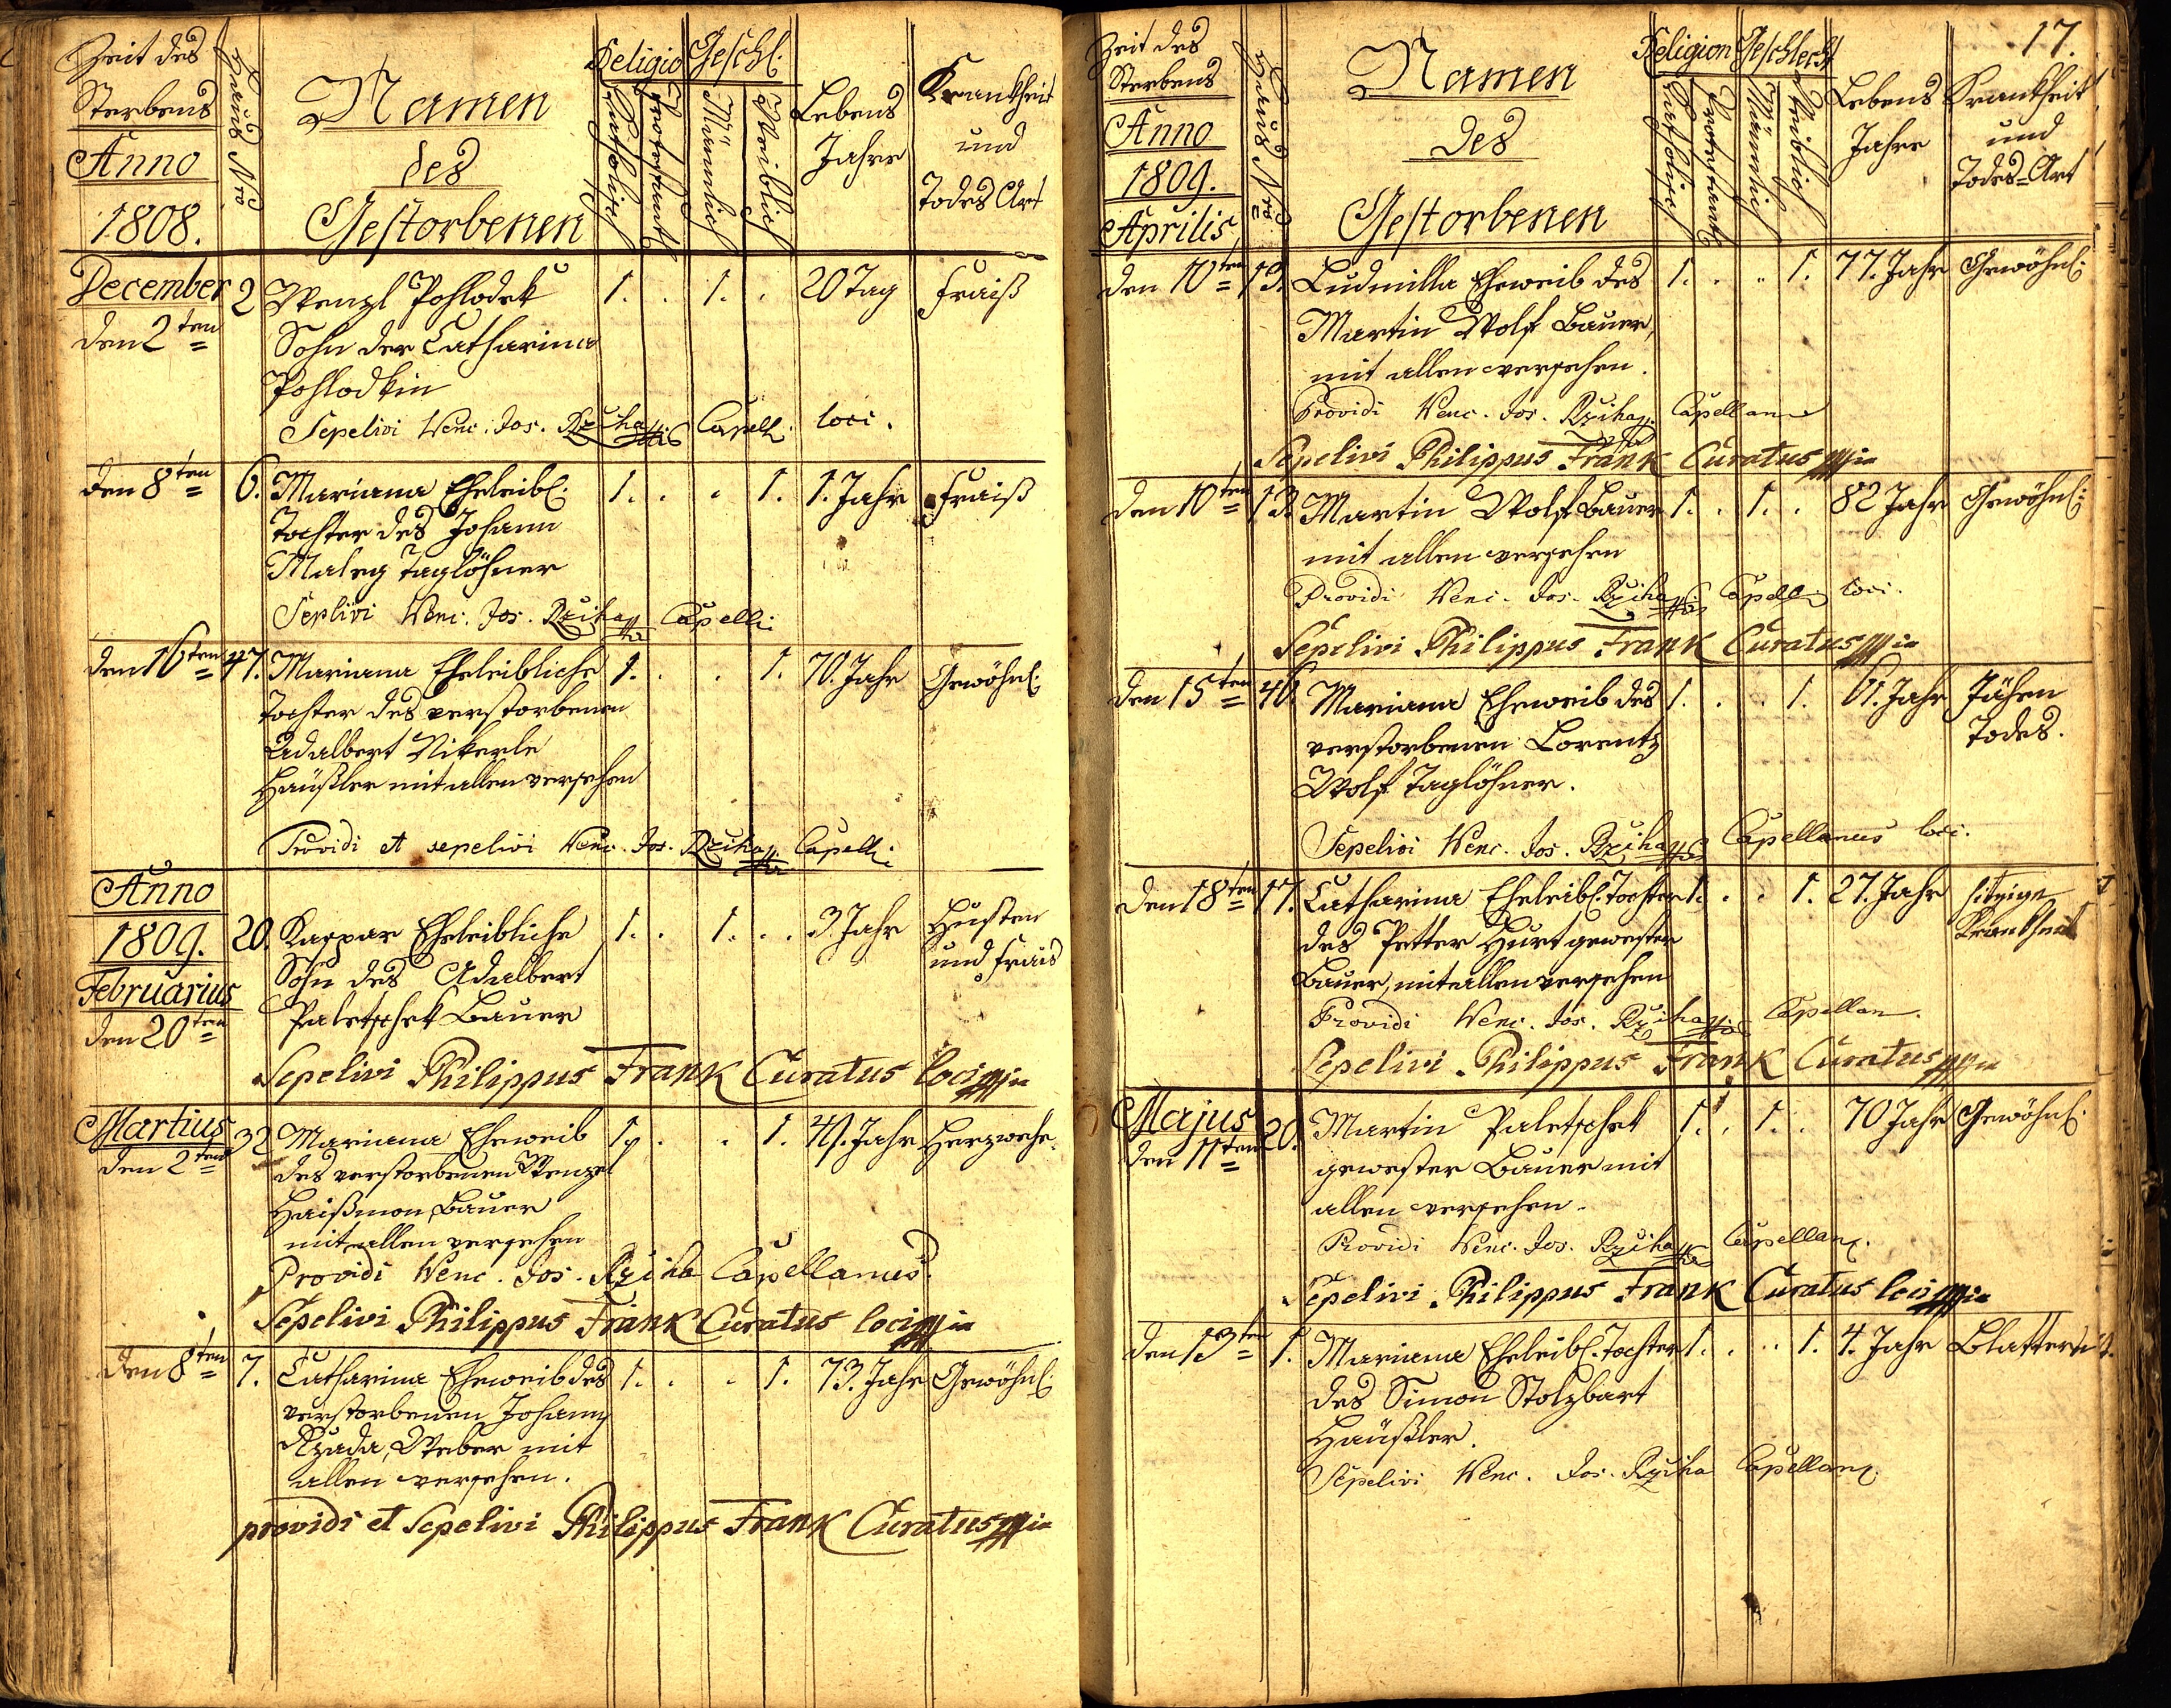 Zeit des
Sterbens
Anno
1808.
Haus Nro
Namen
des
Gestorbenen
Religio
Katholisch
Protestant
Geschl:
Männlich
Weiblich
Lebens
Jahre
Krankheit
und
Todes Art
December 2 Wenzl Pohlodek 1. . 1. . 20 Tag Fraiß
den 2ten Sohn der Catharina
Pohlodkin
Sepelivi Wenc. Jos. Rziha Capell. loci.
den 8ten 6. Mariana Eheleibl: 1. . . 1. 1. Jahr Fraiß
Tochter des Johann
Maleg Taglöhner
Seplivi Wenc. Jos. Rziha Capell:
den 16ten 47. Mariana Eheleibliche 1. . . 1. 70. Jahr Gewöhnl:
Tochter des verstorbenen
Adalbert Nikerle
Häußler mit allen versehen
Providi et sepelivi Wenc. Jos. Rziha Capell:
Anno
1809. 20. Kaspar Eheleibliche 1. . 1. . 3 Jahr Husten
Februarius Sohn des Adalbert und Frais
den 20ten Paletschek Bauer
Sepelivi Philippus Frank Curatus loci mpia
Martius 32 Mariana Eheweib 1. . . 1. 41. Jahr Herzwehe.
den 2ten des verstorbenen Wenzel
Haißmon Bauer
mit allen versehen
Providi Wenc. Jos. Rziha Capellanus.
Sepelivi Philippus Frank Curatus loci mpia
den 8ten 7. Catharina Eheweib des 1. . . 1. 73. Jahr Gewöhnl:
verstorbenen Johann
Rzada, Weber mit
allen versehen.
providi et Sepelivi Philippus Frank Curatus mpia
17.
Zeit des
Sterbens
Anno
1809.
Aprilis
Haus Nro
Namen
des
Gestorbenen
Religion
Katholisch
Protestant
Geschlecht
Männlich
Weiblich
Lebens
Jahre
Krankheit
und
Todes=Art
den 10ten 13. Ludmilla Eheweib des 1. . . 1. 77. Jahr Gewöhnl:
Martin Wolf Bauer,
mit allen versehen.
Providi Wenc. Jos. Rziha Capellan
Sepelivi Philippus Frank Curatus mpia
den 10ten 13. Martin Wolf Bauer 1. . 1. . 82 Jahr Gewöhnl:
mit allen versehen
Providi Wenc. Jos. Rziha Capell loci.
Sepelivi Philippus Frank Curatus mpia
den 15ten 40. Mariana Eheweib des 1. . . 1. 61. Jahr Jähen
verstorbenen Lorentz Todes.
Wolf Taglöhner.
Sepelivi Wenc. Jos. Rziha Capellanus loci.
den 18ten 17. Catharina Eheleibl: Tochter 1. . . 1. 27. Jahr hitzige
des Petter Hurt gewester Krankheit
Bauer, mit allen versehen
Providi Wenc. Jos. Rziha Capellan.
Sepelivi Philippus Frank Curatus mpia
Majus 20. Martin Paletschek 1. . 1. . 70 Jahr Gewöhnl:
den 11ten gewester Bauer mit
allen versehen.
Providi Wenc. Jos. Rziha Capellan.
Sepelivi Philippus Frank Curatus loci mpia
den 13ten 1. Mariana Eheleibl: Tochter 1. . . 1. 4. Jahr Blattern
des Simon Stolzbart
Häußler.
Sepelivi Wenc. Jos. Rziha Capellan.